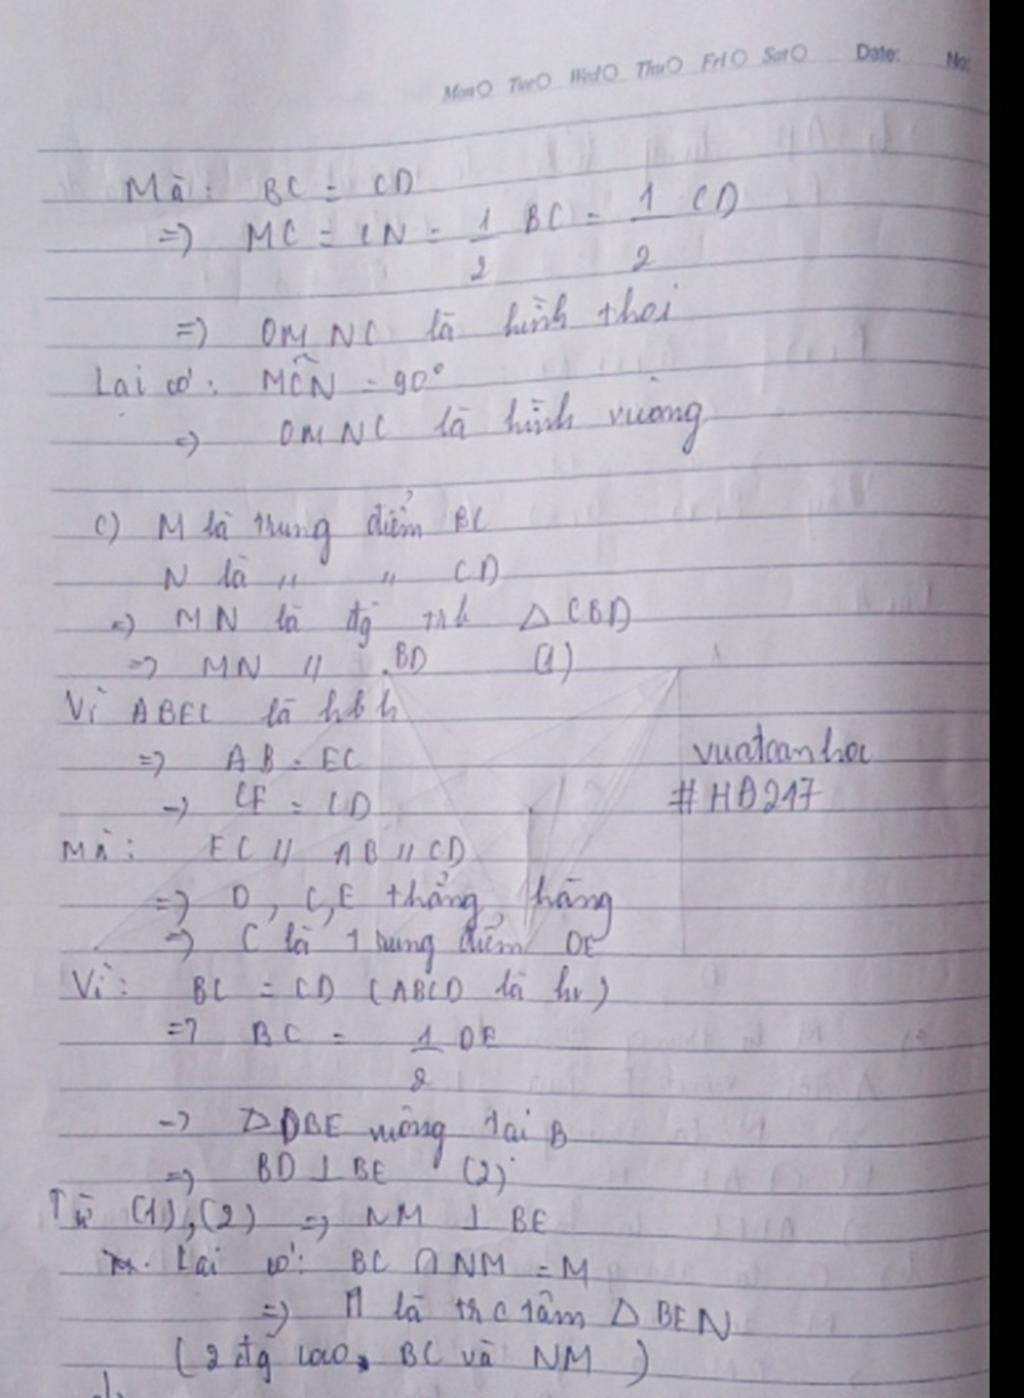 Mon Tue Wed Thu Fri Sat Date: No:
Mà: BC = CD
=> MC = CN = 1/2 BC = 1/2 CD
=> OMNC là hình thoi
Lại có: MĈN = 90°
=> OMNC là hình vuông
c) M là trung điểm BC
N là " " CD
=> MN là đg trb Δ CBD
=> MN // BD (1)
Vì ABEC là hbh
=> AB = EC
=> CE = CD
vuatoanhoc
#HD217
Mà: EC // AB // CD
=> D, C, E thẳng hàng
=> C là trung điểm DE
Vì: BC = CD (ABCD là hv)
=> BC = 1/2 DE
=> Δ DBE vuông tại B
=> BD ⊥ BE (2)
Từ (1), (2) => NM ⊥ BE
Lại có: BC ∩ NM = M
=> M là trc tâm Δ BEN
(2 đg cao BC và NM)